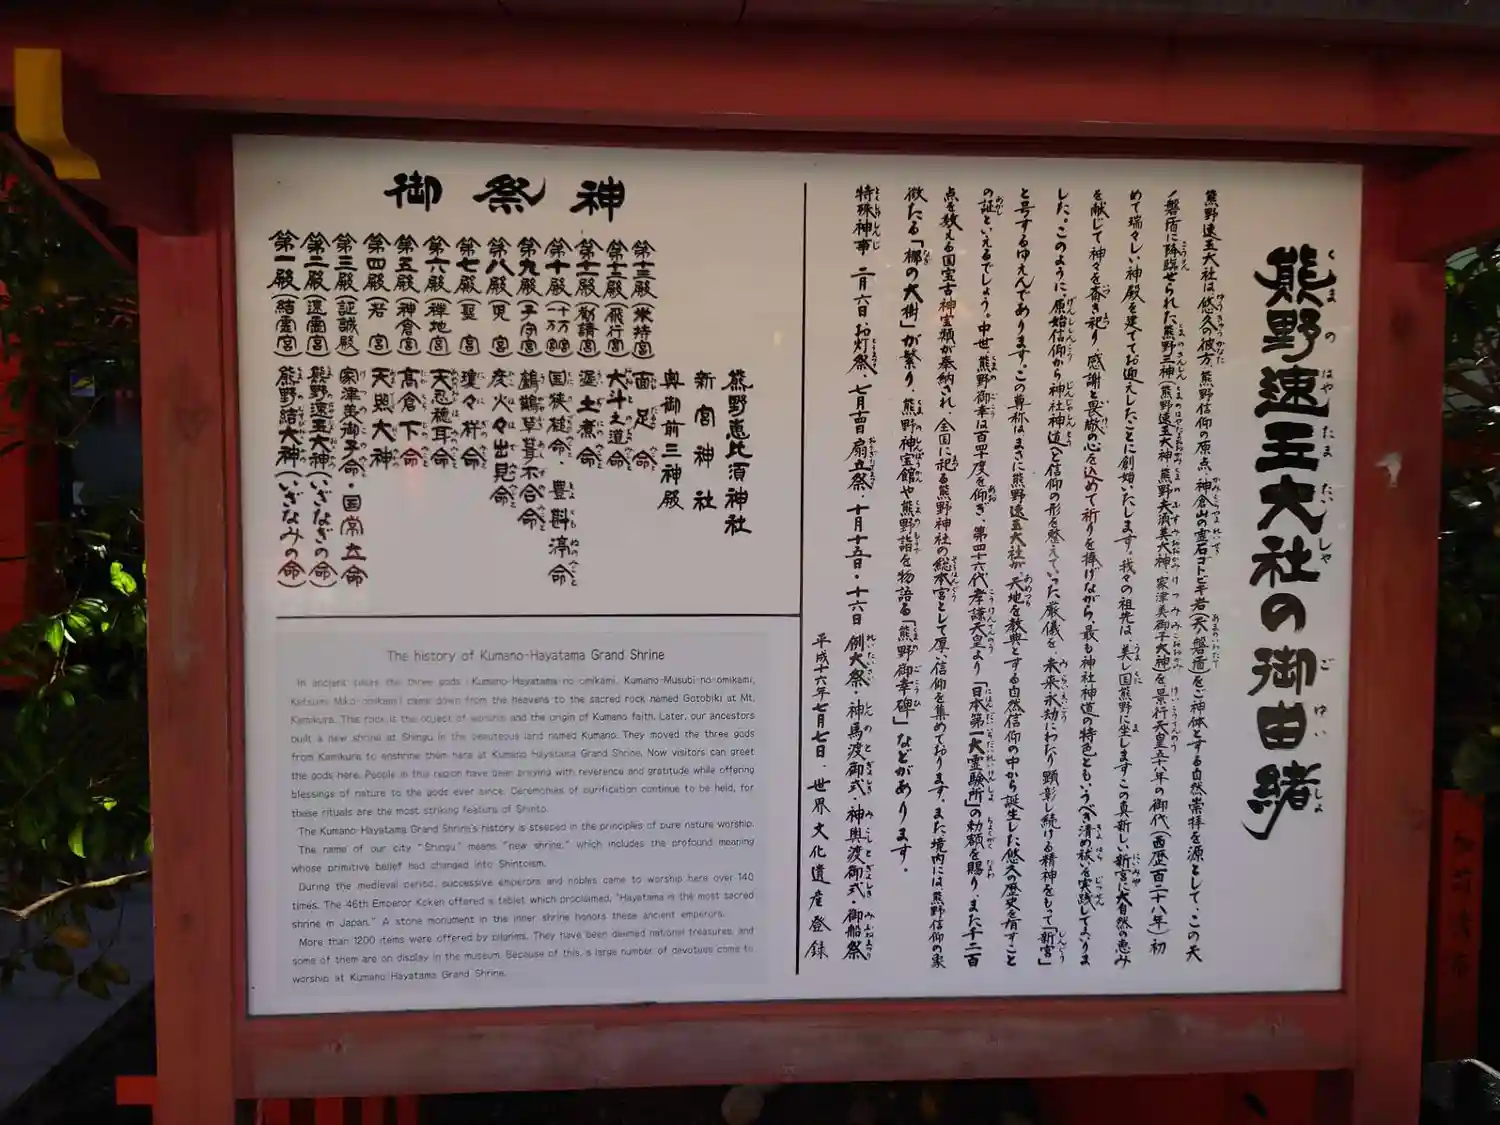 熊野速玉大社の御由緒
熊野速玉大社は悠久の彼方、熊野信仰の原点、神倉山の霊石ゴトビキ岩(天磐盾)をご神体とする自然崇拝を源として、この天
ノ磐盾に降臨せられた、熊野三神(熊野速玉大神・熊野夫須美大神・家津美御子大神)を景行天皇五十八年の御代(西歴百二十八年)初
めて瑞々しい神殿を建ててお迎えしたことに創始いたします。我々の祖先は、美し国熊野に坐しますこの真新しい新宮に大自然の恵み
を献じて神々を斎き祀り、感謝と畏敬の心を込めて祈りを捧げながら、最も神社神道の特色ともいうべき清め祓いを実践してまいりま
した。このように原始信仰から神社神道へと信仰の形を整えていった厳儀を、未来永劫にわたり顕彰し続ける精神をもって「新宮」
と号するゆえんであります。この尊称はまさに熊野速玉大社が、天地を教典とする自然信仰の中から誕生した悠久の歴史を有すこと
の証といえるでしょう。中世、熊野御幸は百四十度を仰ぎ、第四十六代孝謙天皇より「日本第一大霊験所」の勅額を賜り、また千二百
点を数える国宝古神宝類が奉納され、全国に祀る熊野神社の総本宮として厚い信仰を集めております。また境内には熊野信仰の象
徴たる「梛の大樹」が繁り、熊野神宝館や熊野詣を物語る「熊野御幸碑」などがあります。
特殊神事 二月六日お灯祭、七月十四日扇立祭、十月十五日・十六日 例大祭・神馬渡御式・神輿渡御式・御船祭
平成十六年七月七日・世界文化遺産登録
御祭神
第一殿(結霊宮) 熊野結大神(いざなみの命)
第二殿(速霊宮) 熊野速玉大神(いざなぎの命)
第三殿(証誠殿) 家津美御子命・国常立命
第四殿(若宮) 天照大神
第五殿(神倉宮) 高倉下命
第六殿(禅地宮) 天忍穂耳命
第七殿(聖宮) 瓊々杵命
第八殿(児宮) 彦火々出見命
第九殿(子守宮) 鸕鶿草葺不合命
第十殿(一万宮十万宮) 国狭槌命・豊斟渟命
第十一殿(勧請宮) 泥土煮命
第十二殿(飛行宮) 大斗之道命
第十三殿(米持宮) 面足命
奥御前三神殿
新宮神社
熊野恵比須神社
The history of Kumano-Hayatama Grand Shrine
In ancient times the three gods (Kumano-Hayatama-no-omikami, Kumano-Musubi-no-omikami,
Ketsumi Miko-omikami) came down from the heavens to the sacred rock named Gotobiki at Mt.
Kamikura. This rock is the object of worship and the origin of Kumano faith. Later, our ancestors
built a new shrine at Shingu in the beauteous land named Kumano. They moved the three gods
from Kamikura to enshrine them here at Kumano Hayatama Grand Shrine. Now visitors can greet
the gods here. People in this region have been praying with reverence and gratitude while offering
blessings of nature to the gods ever since. Ceremonies of purification continue to be held, for
these rituals are the most striking feature of Shinto.
The Kumano-Hayatama Grand Shrine's history is steeped in the principles of pure nature worship.
The name of our city "Shingu" means "new shrine," which includes the profound meaning
whose primitive belief had changed into Shintoism.
During the medieval period, successive emperors and nobles came to worship here over 140
times. The 46th Emperor Koken offered a tablet which proclaimed, "Hayatama is the most sacred
shrine in Japan." A stone monument in the inner shrine honors these ancient emperors.
More than 1200 items were offered by pilgrims. They have been deemed national treasures, and
some of them are on display in the museum. Because of this, a large number of devotees come to
worship at Kumano Hayatama Grand Shrine.